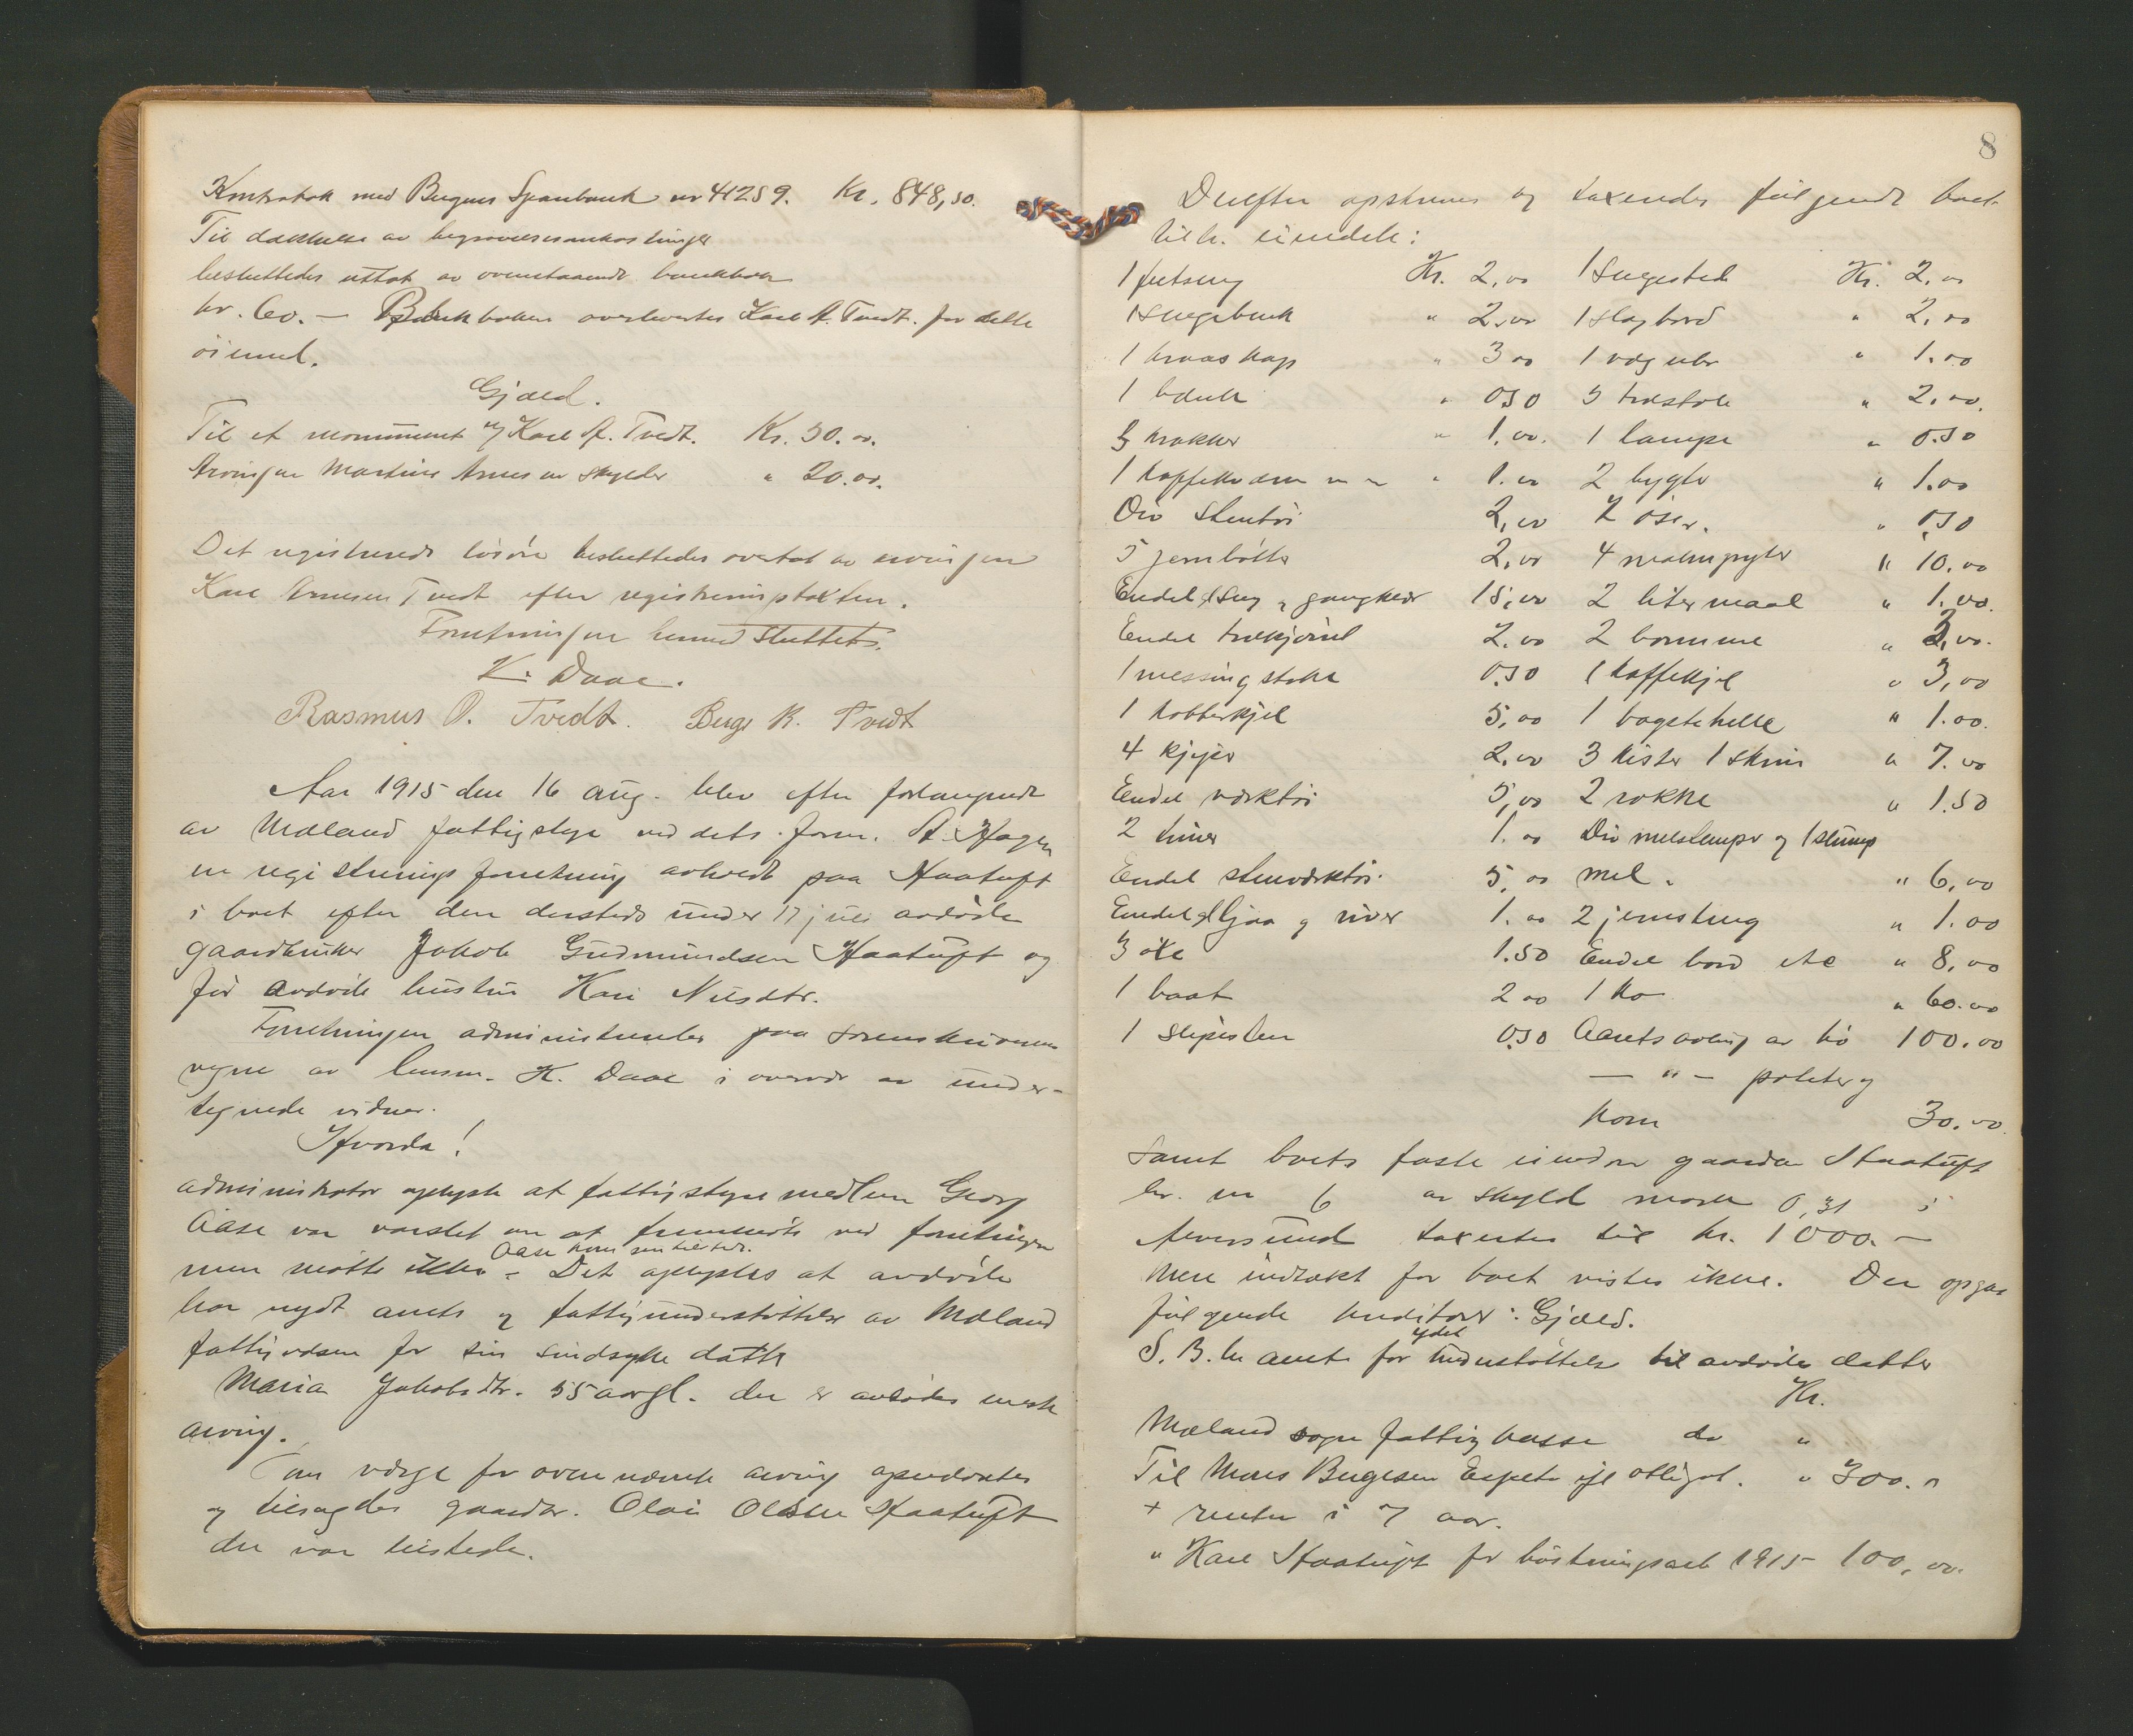 Kontrabok med Bergens Sparebank nr 41259. Kr. 848,50.
Til dækkelse av begravelsesomkostninger
besluttedes uttat av ovenstaaende bankbok
kr. 60.- Bankboken overlevertes Karl A. Tvedt. for dette
öiemed.
Gjæld.
Til et monument v/ Karl A. Tvedt. Kr. 50.00.
Arvingen Martine Arnesen skylder " 20.00.
Det registrerede lösöre besluttedes overtat av arvingen
Karl Arnesen Tvedt efter registreringstaksten.
Forretningen hermed sluttet.
K. Daae.
Rasmus O. Tvedt. Berge R. Tvedt
Aar 1915 den 16 aug. blev efter forlangende
av Mæland fattigstyre ved dets form. A. Hagen
en registreringsforretning avholdt paa Haatuft
i boet efter den dersteds under 17 juli avdöde
gaardbruker Jakob Gudmundsen Haatuft og
för avdöde hustru Kari Nilsdtr.
Forretningen administrertes paa sorenskriverens
vegne av lensm. K. Daae i overvær av under-
tegnede vidner.
Hvorda!
Administrator oplyste at fattigstyremedlem Georg
Aase var varslet om at fremmöte ved forretningen
men mötte ikke - Aase kom senere tilstede. Det oplystes at avdöde
har nydt amts og fattigunderstöttelse av Mæland
fattigvæsen for sin sindsyke datter
Maria Jakobsdtr. 55 aar gl. der er avdödes eneste
arving.
Som værge for ovennævnte arving opnævntes
og tilsagdes gaardbr. Olai Olsen Haatuft
der var tilstede.
8
Derefter opskreves og taxertes fölgende boet
tilh. eiendele:
1 futseng Kr. 2,00 1 sengested Kr. 2,00
1 sengebenk " 2,00 1 slagbord " 2,00
1 kraaskap " 3 00 1 vægur " 1.00
1 bænk " 0,50 5 træstole " 2,00.
3 krakker " 1,00. 1 lampe " 0.50
1 kaffekvern " 1.00 2 lygte " 1.00
Div stentöi 2,00 2 öser. " 0,50
5 jernbötte 2,00 4 malmgryter " 10.00
Endel seng og gangklær 15,00 2 litermaal " 1.00.
Endel trækjörel 2.00 2 bomme " 2,00.
1 messingstake 0.50 1 kaffekjel " 3,00
1 kobberkjel 5,00 1 bagstehelle " 1.00.
4 kjeger 2,00 3 kister 1 skrin " 7.00
Endel værktöi 5,00 2 rokke " 1.50
2 tiner 1.00 Div melslumper og 1 slump
Endel stenværktöi 5,00 mel. " 6,00
Endel ljaa og river 1.00 2 jernstang " 1.00
3 öxe 1.50 Endel bord etc " 8,00
1 baat 2 00 1 ko " 60.00
1 slipesten 0.50 Aarets avling av hö 100.00
— " — poteter og
korn 30.00
Samt boets faste eiendom gaarden Haatuft
br. nr 6 av skyld mark 0,31 i
Alversund taxertes til kr. 1000.-
Mere indtækt for boet vistes ikke. Der opgav
fölgende kreditorer: Gjæld.
S. B.hus amt for ydet understöttelse til avdödes datter
Kr.
Mæland sogns fattigkasse do "
Til Mons Bergesen Espeto ifl obligat. " 300.00
+ renter i 7 aar.
" Karl Haatuft for höstningsarb 1915 100,00.